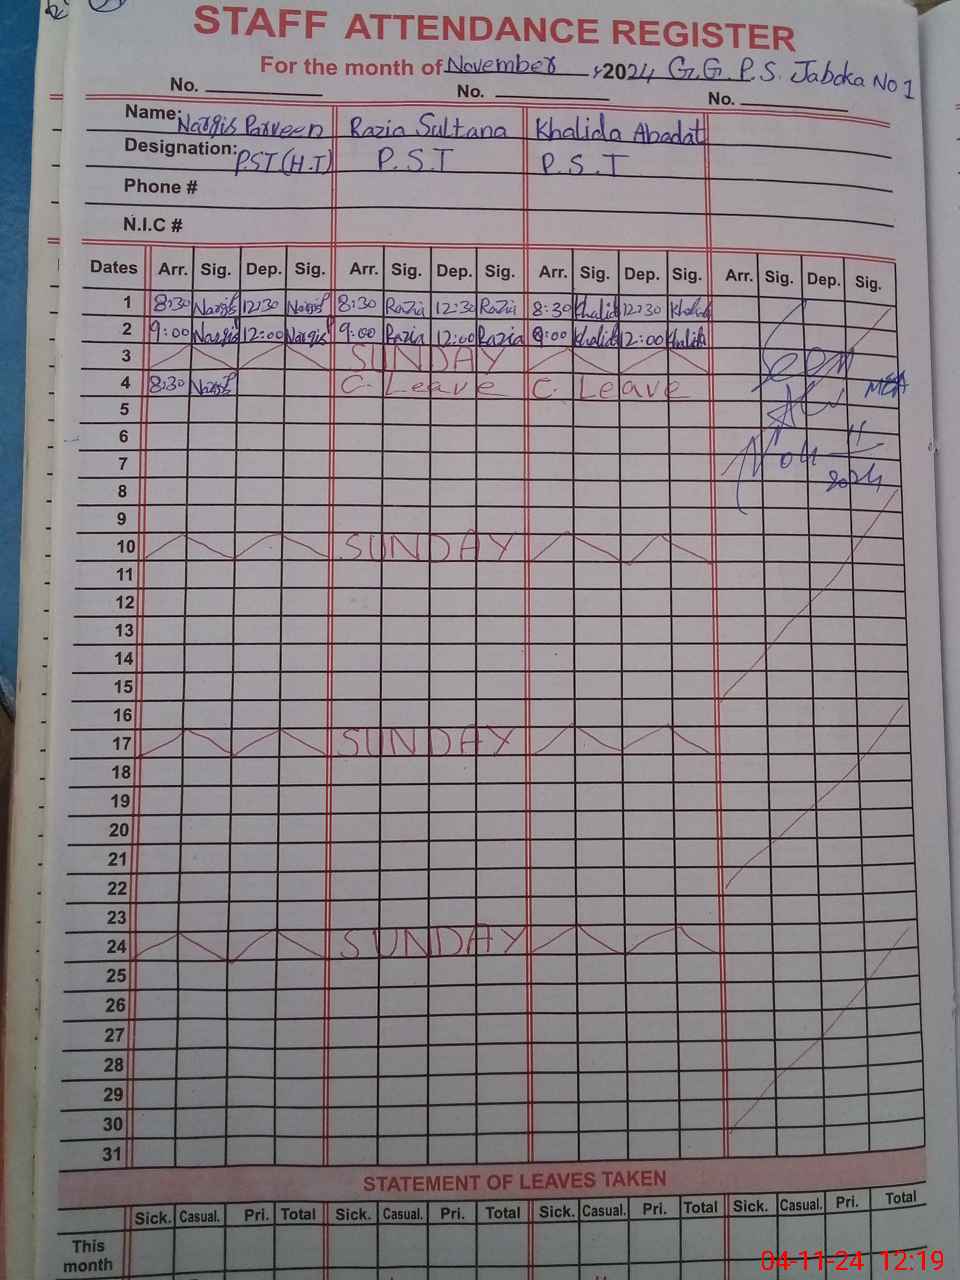 STAFF ATTENDANCE REGISTER
For the month of November, 2024 G.G.P.S. Jaboka No 1
No. No. No.
Name: Nargis Parveen Razia Sultana Khalida Abadat
Designation: PST (H.T) P.S.T P.S.T
Phone #
N.I.C #
Dates Arr. Sig. Dep. Sig. Arr. Sig. Dep. Sig. Arr. Sig. Dep. Sig. Arr. Sig. Dep. Sig.
1 8:30 Nargis 12:30 Nargis 8:30 Razia 12:30 Razia 8:30 Khalida 12:30 Khalida
2 9:00 Nargis 12:00 Nargis 9:00 Razia 12:00 Razia 9:00 Khalida 12:00 Khalida
3 SUNDAY Seen
4 8:30 Nargis C. Leave C. Leave MEA
5
6 04 11
7
8 2024
9
10 SUNDAY
11
12
13
14
15
16
17 SUNDAY
18
19
20
21
22
23
24 SUNDAY
25
26
27
28
29
30
31
STATEMENT OF LEAVES TAKEN
Sick. Casual. Pri. Total Sick. Casual. Pri. Total Sick. Casual. Pri. Total Sick. Casual. Pri. Total
This
month
04-11-24 12:19